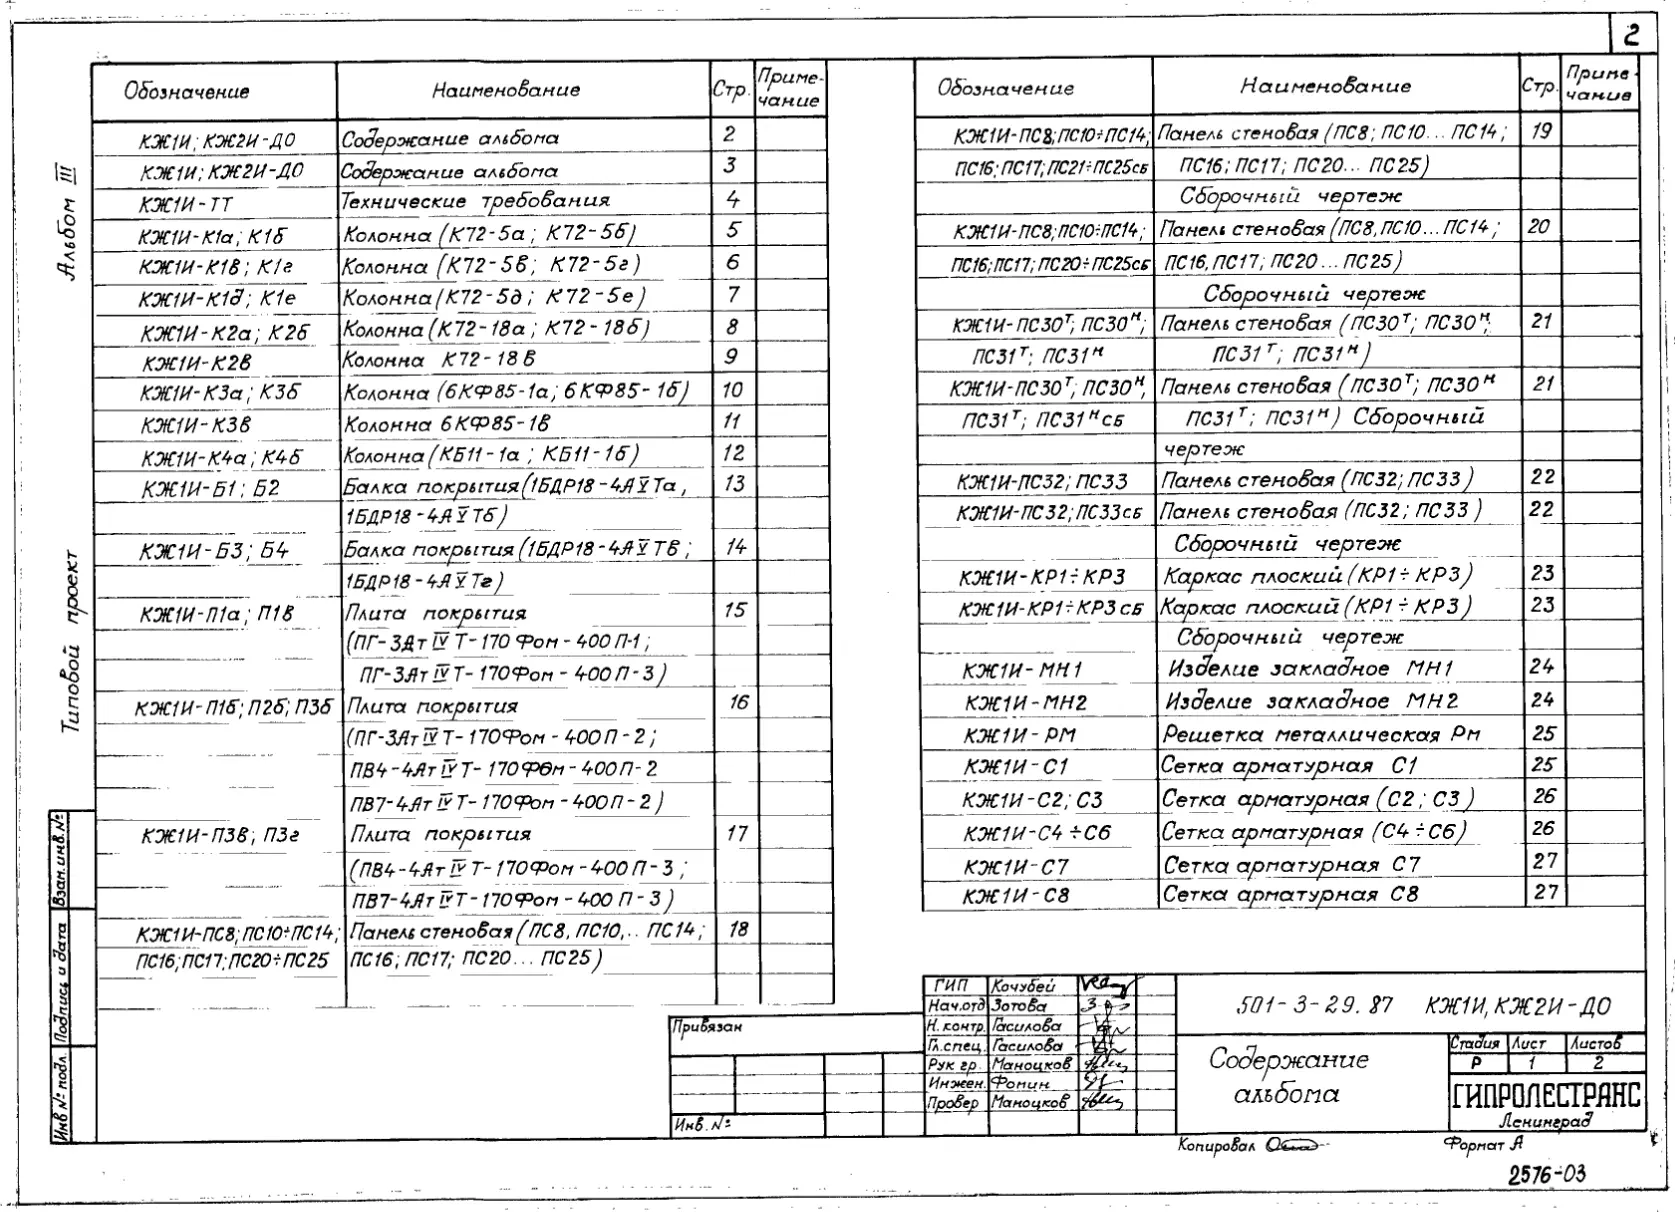 2
Альбом III
Типовой проект
Взам. инв. №
Подпись и дата
Инв № подл.
Обозначение Наименование Стр. Примечание
КЖ1И; КЖ2И-ДО Содержание альбома 2
КЖ1И; КЖ2И-ДО Содержание альбома 3
КЖ1И-ТТ Технические требования 4
КЖ1И-К1а; К1б Колонна (К72-5а; К72-5б) 5
КЖ1И-К1в; К1г Колонна (К72-5в; К72-5г) 6
КЖ1И-К1д; К1е Колонна (К72-5д; К72-5е) 7
КЖ1И-К2а; К2б Колонна (К72-18а; К72-18б) 8
КЖ1И-К2в Колонна К72-18в 9
КЖ1И-К3а; К3б Колонна (6КФ85-1а; 6КФ85-1б) 10
КЖ1И-К3в Колонна 6КФ85-1в 11
КЖ1И-К4а; К4б Колонна (КБ11-1а; КБ11-1б) 12
КЖ1И-Б1; Б2 Балка покрытия (1БДР18-4АVТа, 13
1БДР18-4АVТб)
КЖ1И-Б3; Б4 Балка покрытия (1БДР18-4АVТв; 14
1БДР18-4АVТг)
КЖ1И-П1а; П1в Плита покрытия 15
(ПГ-3АтIVТ-170Фом-400П-1;
ПГ-3АтIVТ-170Фом-400П-3)
КЖ1И-П1б; П2б; П3б Плита покрытия 16
(ПГ-3АтIVТ-170Фом-400П-2;
ПВ4-4АтIVТ-170Фом-400П-2
ПВ7-4АтIVТ-170Фом-400П-2)
КЖ1И-П3в; П3г Плита покрытия 17
(ПВ4-4АтIVТ-170Фом-400П-3;
ПВ7-4АтIVТ-170Фом-400П-3)
КЖ1И-ПС8; ПС10÷ПС14; Панель стеновая (ПС8, ПС10,.. ПС14; 18
ПС16; ПС17; ПС20÷ПС25 ПС16; ПС17; ПС20... ПС25)
Обозначение Наименование Стр. Примечание
КЖ1И-ПС8; ПС10÷ПС14; Панель стеновая (ПС8; ПС10... ПС14; 19
ПС16; ПС17; ПС21÷ПС25сб ПС16; ПС17; ПС20... ПС25)
Сборочный чертеж
КЖ1И-ПС8; ПС10÷ПС14; Панель стеновая (ПС8, ПС10... ПС14; 20
ПС16; ПС17; ПС20÷ПС25сб ПС16, ПС17; ПС20... ПС25)
Сборочный чертеж
КЖ1И-ПС30т; ПС30н; Панель стеновая (ПС30т; ПС30н; 21
ПС31т; ПС31н ПС31т; ПС31н)
КЖ1И-ПС30т; ПС30н; Панель стеновая (ПС30т; ПС30н 21
ПС31т; ПС31нсб ПС31т; ПС31н) Сборочный
чертеж
КЖ1И-ПС32; ПС33 Панель стеновая (ПС32; ПС33) 22
КЖ1И-ПС32; ПС33сб Панель стеновая (ПС32; ПС33) 22
Сборочный чертеж
КЖ1И-КР1÷КР3 Каркас плоский (КР1÷КР3) 23
КЖ1И-КР1÷КР3сб Каркас плоский (КР1÷КР3) 23
Сборочный чертеж
КЖ1И-МН1 Изделие закладное МН1 24
КЖ1И-МН2 Изделие закладное МН2 24
КЖ1И-РМ Решетка металлическая Рм 25
КЖ1И-С1 Сетка арматурная С1 25
КЖ1И-С2; С3 Сетка арматурная (С2; С3) 26
КЖ1И-С4÷С6 Сетка арматурная (С4÷С6) 26
КЖ1И-С7 Сетка арматурная С7 27
КЖ1И-С8 Сетка арматурная С8 27
Привязан
Инв. №
ГИП Кочубей
Нач.отд Зотова
Н.контр. Гасилова
Гл.спец. Гасилова
Рук гр. Маноцков
Инжен. Фомин
Провер Маноцков
501-3-29.87 КЖ1И, КЖ2И-ДО
Содержание
альбома
Стадия Лист Листов
Р 1 2
ГИПРОЛЕСТРАНС
Ленинград
Копировал
Формат А
2576-03